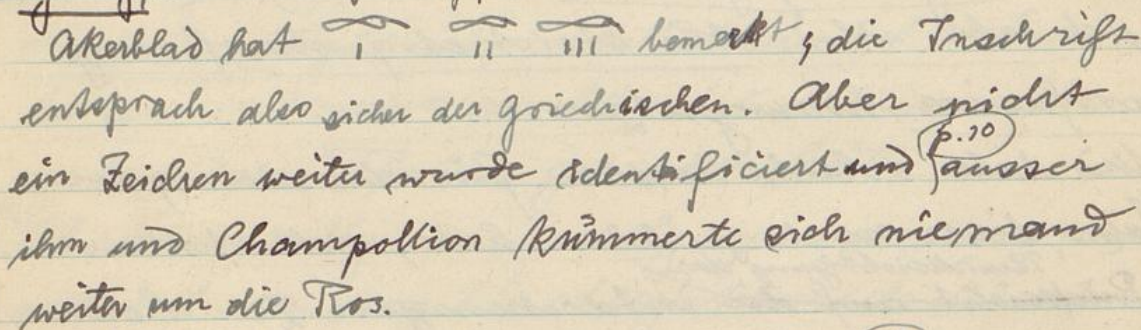 Akerblad hat I II III bemerkt, die Inschrift
entsprach also sicher der griechischen. Aber nicht
p. 10
ein Zeichen weiter wurde identificiert und ausser
ihm und Champollion kümmerte sich niemand
weiter um die Ros.